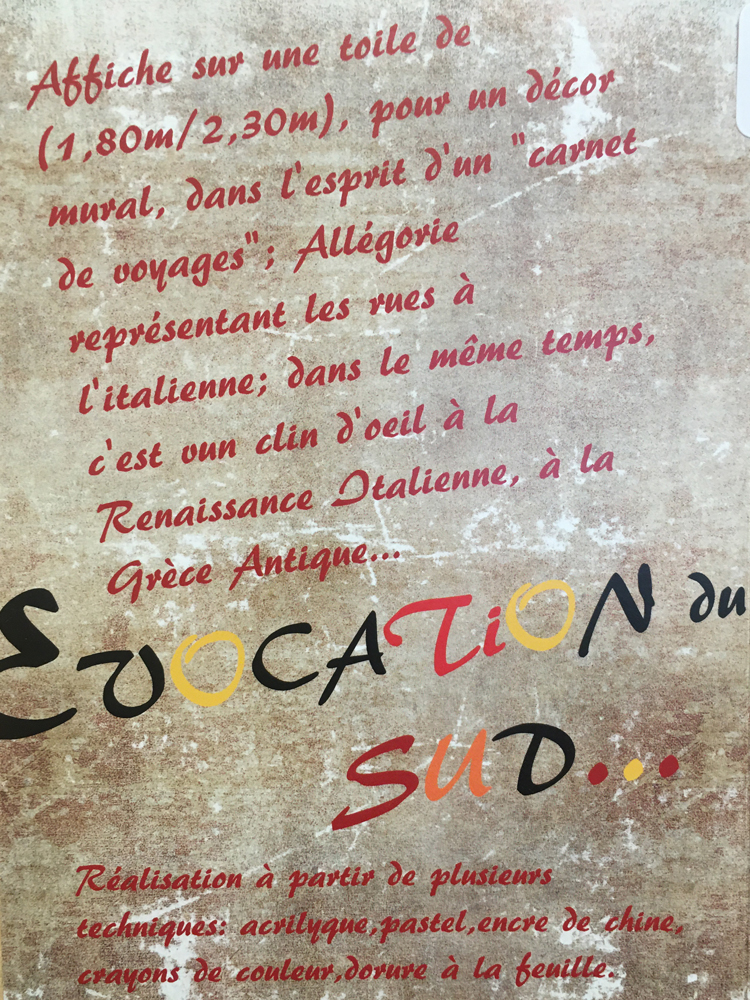 Affiche sur une toile de
(1,80m/2,30m), pour un décor
mural, dans l'esprit d'un "carnet
de voyages"; Allégorie
représentant les rues à
l'italienne; dans le même temps,
c'est vun clin d'oeil à la
Renaissance Italienne, à la
Grèce Antique...
EVOCATION du
SUD...
Réalisation à partir de plusieurs
techniques: acrilyque,pastel,encre de chine,
crayons de couleur,dorure à la feuille.